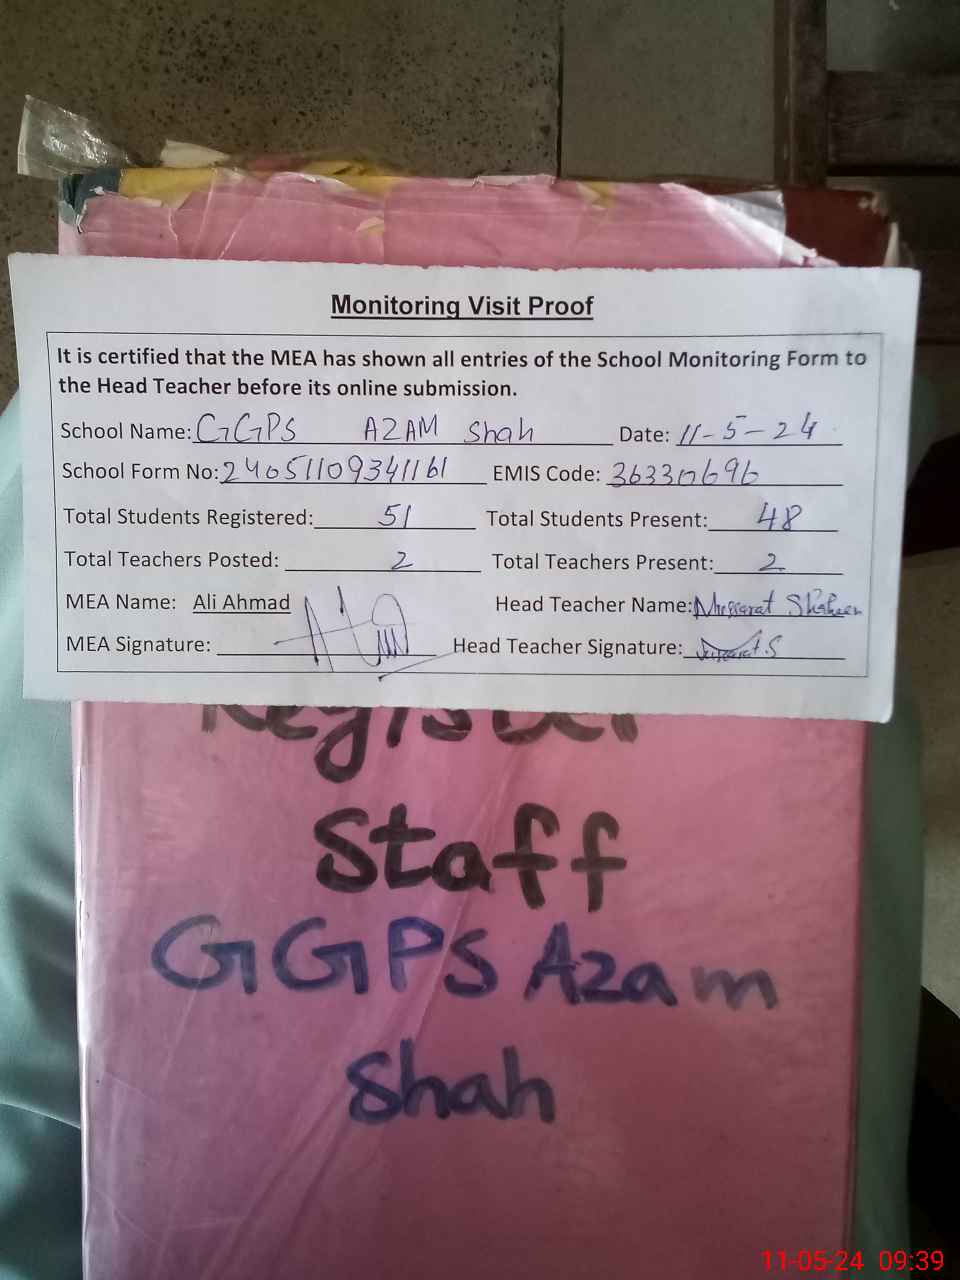 Monitoring Visit Proof
It is certified that the MEA has shown all entries of the School Monitoring Form to
the Head Teacher before its online submission.
School Name: GGPS AZAM Shah Date: 11-5-24
School Form No: 24051109341161 EMIS Code: 36330696
Total Students Registered: 51 Total Students Present: 48
Total Teachers Posted: 2 Total Teachers Present: 2
MEA Name: Ali Ahmad Head Teacher Name: Mussarat Shaheen
MEA Signature: Head Teacher Signature:
Register
Staff
GGPS Azam
Shah
11-05-24 09:39